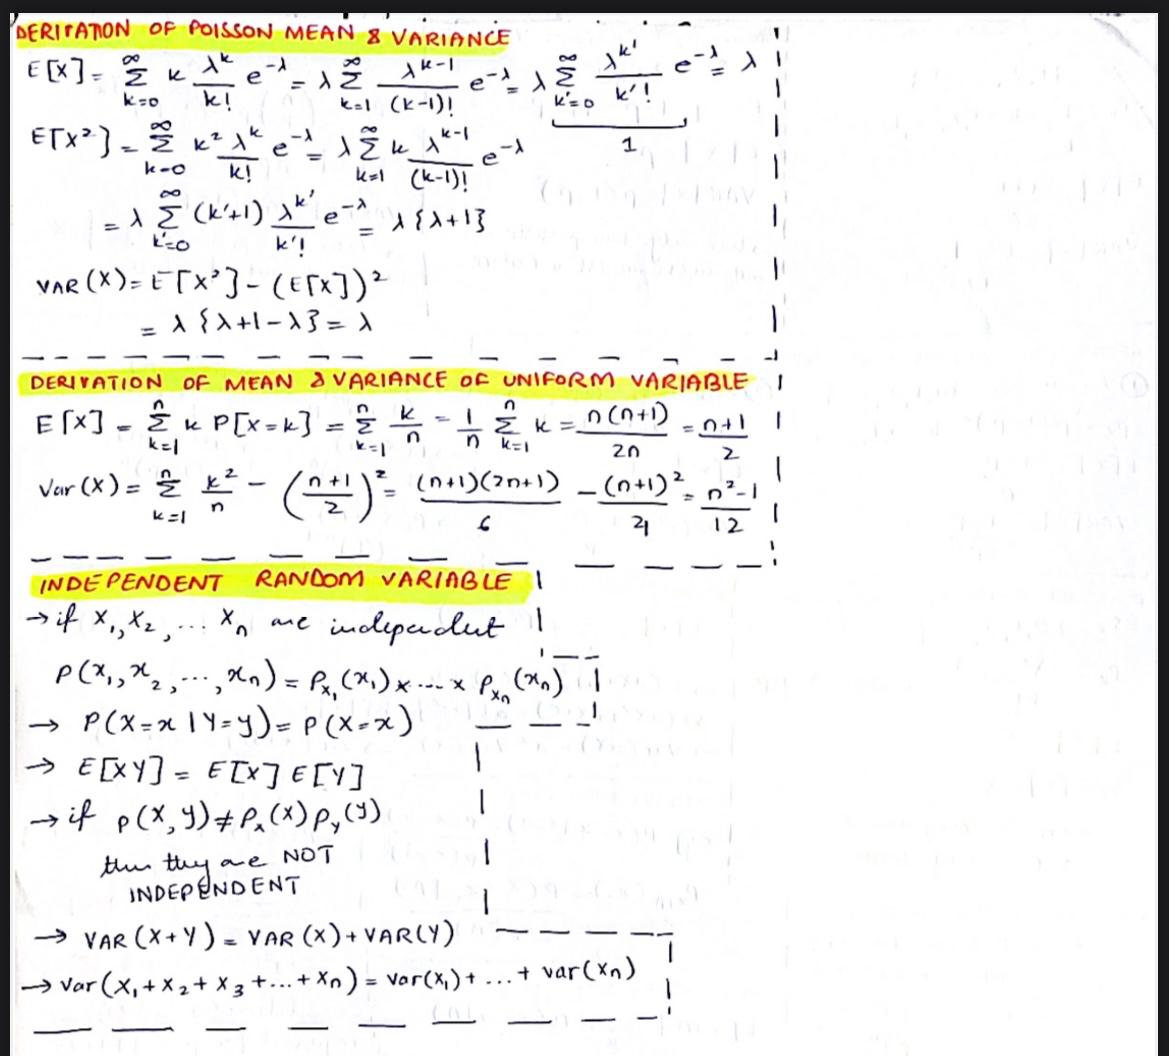 DERIVATION OF POISSON MEAN & VARIANCE
E[X] = ∞Σk=0 k λ^k/k! e^-λ = λ ∞Σk=1 λ^(k-1)/(k-1)! e^-λ = λ ∞Σk'=0 λ^k'/k'! e^-λ = λ
1
E[X²] = ∞Σk=0 k² λ^k/k! e^-λ = λ ∞Σk=1 k λ^(k-1)/(k-1)! e^-λ
= λ ∞Σk'=0 (k'+1) λ^k'/k'! e^-λ = λ {λ+1}
VAR (X) = E[X²] - (E[X])²
= λ {λ+1-λ} = λ
DERIVATION OF MEAN & VARIANCE OF UNIFORM VARIABLE
E[X] = nΣk=1 k P[X=k] = nΣk=1 k/n = 1/n nΣk=1 k = n(n+1)/2n = n+1/2
Var (X) = nΣk=1 k²/n - (n+1/2)² = (n+1)(2n+1)/6 - (n+1)²/4 = n²-1/12
INDEPENDENT RANDOM VARIABLE
→ if X₁, X₂, ... Xn are independent
P(x₁, x₂, ..., xn) = Px₁(x₁) x ... x Pxn(xn)
→ P(X=x | Y=y) = P(X=x)
→ E[XY] = E[X] E[Y]
→ if P(X, y) ≠ Px(X) Py(y)
then they are NOT
INDEPENDENT
→ VAR (X+Y) = VAR (X) + VAR(Y)
→ Var (X₁ + X₂ + X₃ + ... + Xn) = Var(X₁) + ... + var(Xn)